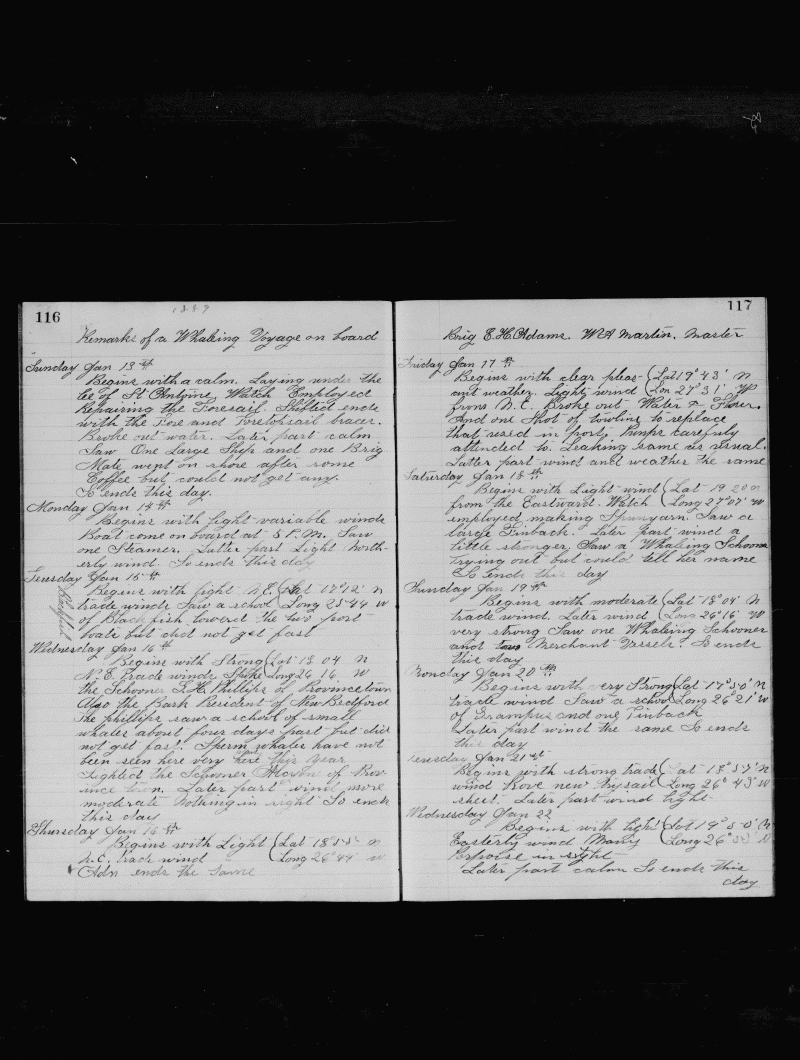 116
Remarks of a Whaleing Voyage on board
Sunday Jan 13th
Begins with a calm. Laying under the
lee of St Antoine Watch Employed
Repairing the Foresail. Shifted ends
with the Fore and Foretopsail braces.
Broke out water. Later part calm
Saw One Large Ship and one Brig
Mate went on shore after some
Coffee but could not get any.
So ends this day.
Monday Jan 14th
Begins with light variable winds
Boat come on board at 5 P.M. Saw
one Steamer. Latter part Light North-
erly wind. So ends this day
Tuesday Jan 15th
Begins with light N.E. Lat 17°12' N
trade winds Saw a school Long 25°44 W
of Black fish lowered the two port
boats but did not get fast
Blackfish
Wednesday Jan 16th
Begins with Strong Lat 18 04 N
N.E. trade winds Spoke Long 26 16 W
the Schooner L.H. Phillips of Provincetown
Also the Bark President of New Bedford
the phillips saw a school of small
whales about four days past but did
not get fast. Sperm whales have not
been seen here very here this year
Sighted the Schooner of Prov-
ince town. Later part wind more
moderate Nothing in sight So ends
this day
Thursday Jan 16th
Begins with Light Lat 18 N
N.E. trade wind Long 26°44' W
ends the same
117
Brig E.H. Adams. W A Martin. Master
Friday Jan 17th
Begins with clear pleas- Lat 19° 43' N
ant weather. Light wind Lon 27° 31' W
from N.E. Broke out Water & Flour.
And one Shot of towline to replace
that used in port. Pumps carefully
attended to. Leaking same as usual.
Latter part wind and weather the same
Saturday Jan 18th
Begins with Light wind Lat 19 20 N
from the Eastward. Watch Long 27°07' W
employed making Spunyarn. Saw a
large Finback. Later part wind a
little stronger Saw a Whaleing Schooner
trying out but could tell her name
So ends this day
Sunday Jan 19th
Begins with moderate Lat 18° 04' N
trade wind. Later wind Long 26°16' W
very strong Saw one Whaleing Schooner
and two Merchant Vessels. So ends
this day
Monday Jan 20th
Begins with very Strong Lat 17° N
trade wind Saw a school Long 26°21' W
of Grampus and one Finback
Later part wind the same So ends
this day
Tuesday Jan 21st
Begins with strong trade Lat 18° N
wind Rove new Trysail Long 26° 43' W
sheet. Later part wind light
Wednesday Jan 22
Begins with light Lat 19° N
Easterly wind Many Long 26° W
Porpoise in sight
Later part calm So ends this
day